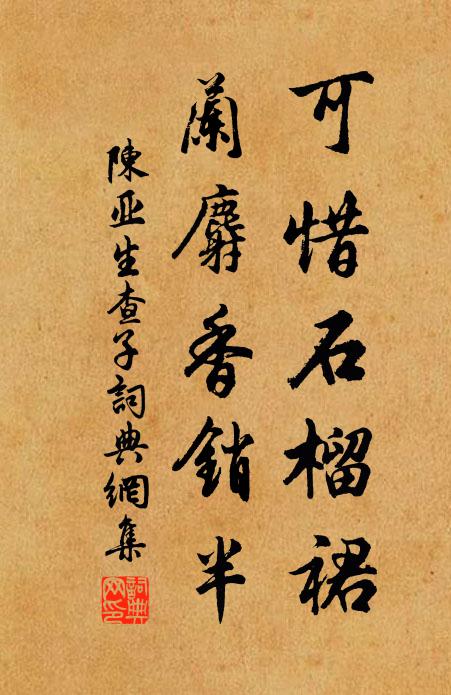 可惜石榴裙
蘭麝香銷半
陳亚生查子詞典網集
詞典网印